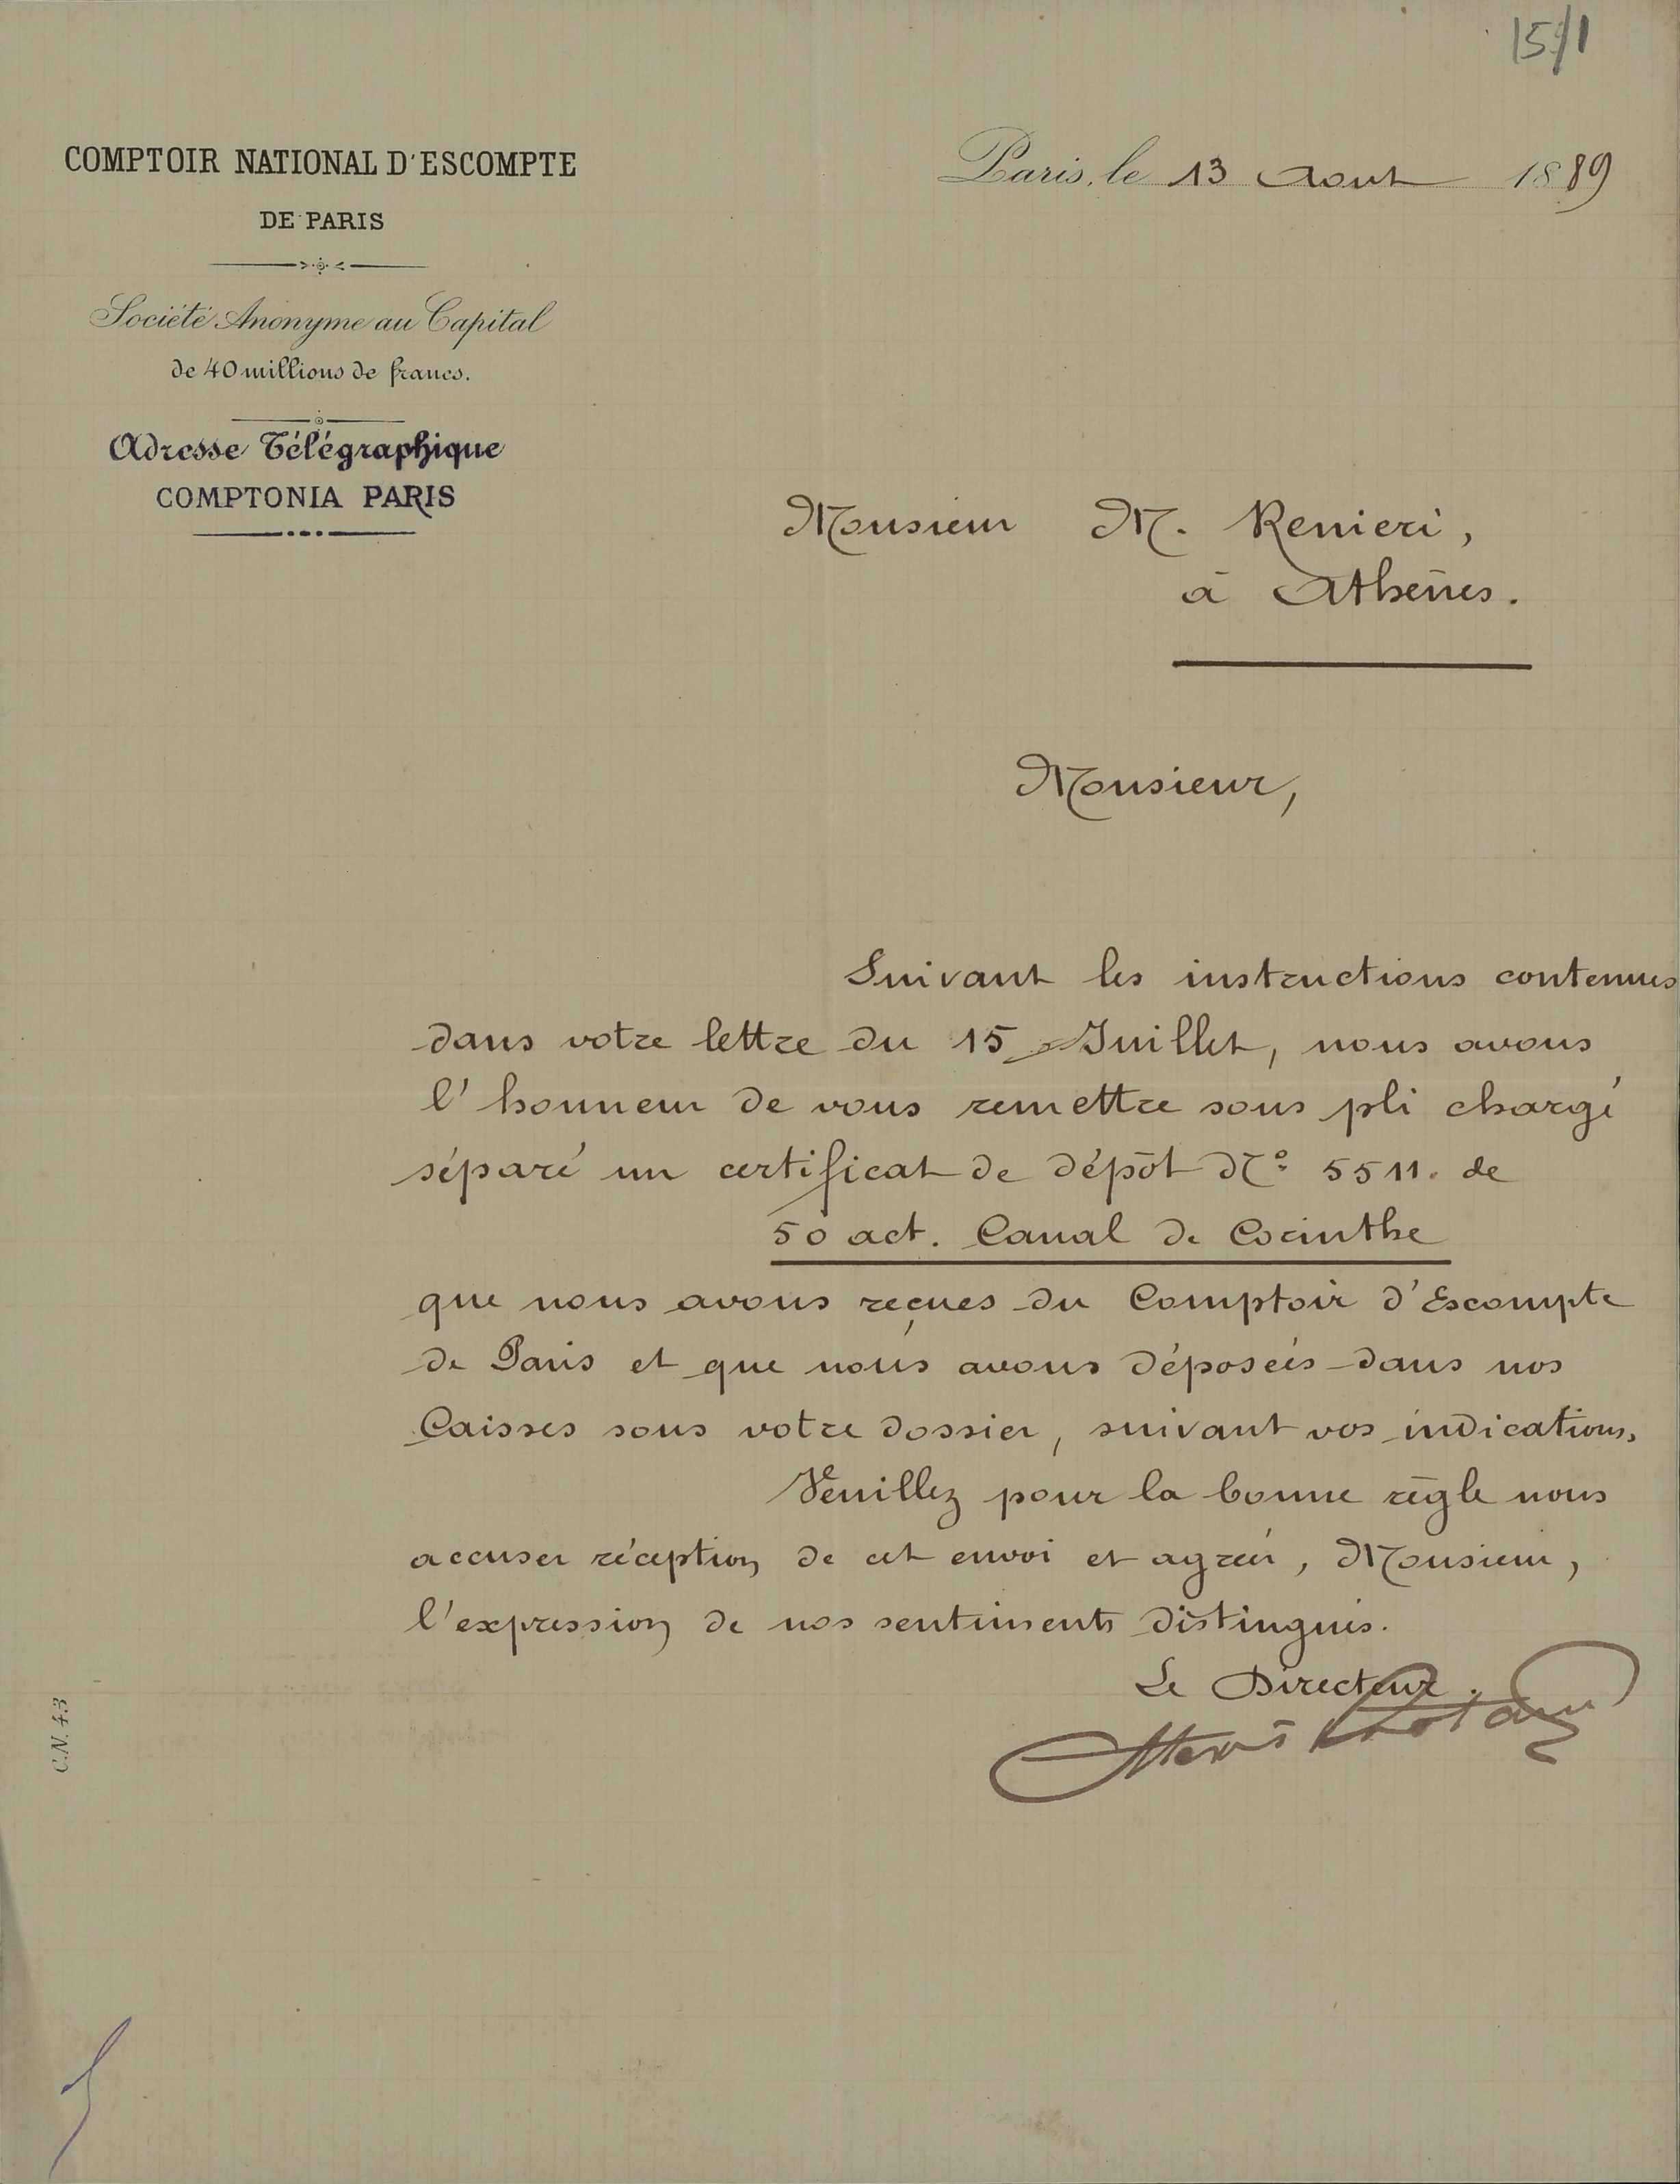 15/1
COMPTOIR NATIONAL D'ESCOMPTE
DE PARIS
Société Anonyme au Capital
de 40 millions de francs.
Adresse Télégraphique
COMPTONIA PARIS
Paris, le 13 Aout 1889
Monsieur M. Renieri,
à Athènes.
Monsieur,
Suivant les instructions contenues
dans votre lettre du 15 Juillet, nous avons
l'honneur de vous remettre sous pli chargé
séparé un certificat de dépôt No 5511. de
50 act. Canal de Corinthe
que nous avons reçues du Comptoir d'Escompte
de Paris et que nous avons déposées dans nos
Caisses sous votre dossier, suivant vos indications.
Veuillez pour la bonne règle nous
accuser réception de cet envoi et agréer, Monsieur,
l'expression de nos sentiments distingués.
Le Directeur.
C.N. 43